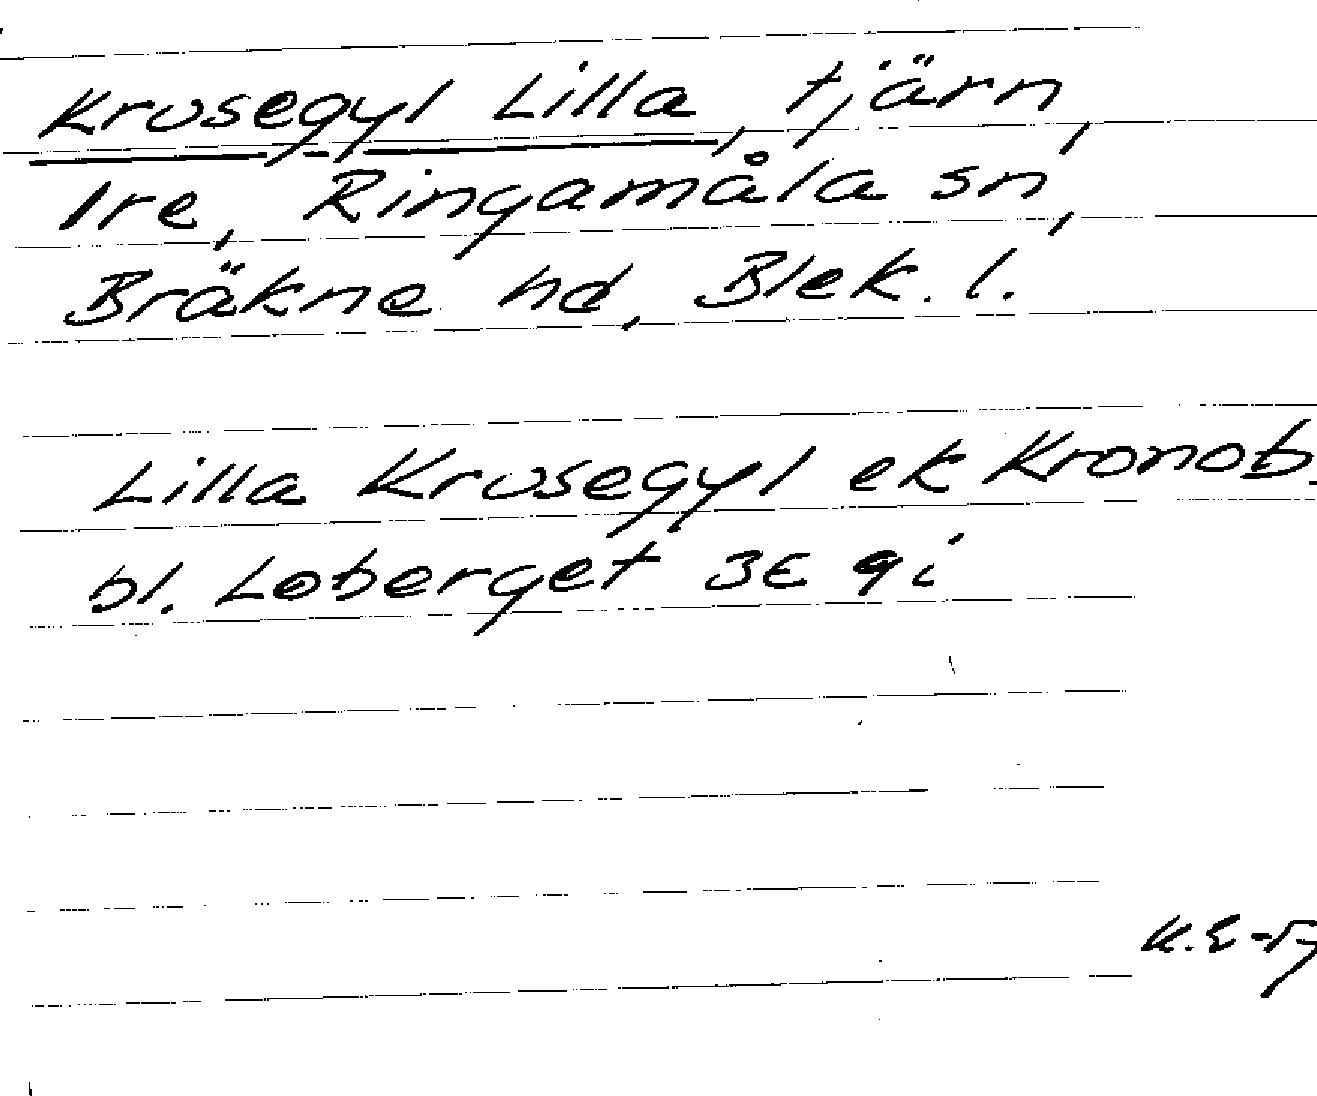 Krusegyl Lilla, tjärn,
Ire, Ringamåla sn,
Bräkne hd, Blek. l.
Lilla Krusegyl ek Kronob.
bl. Loberget 3E 9i